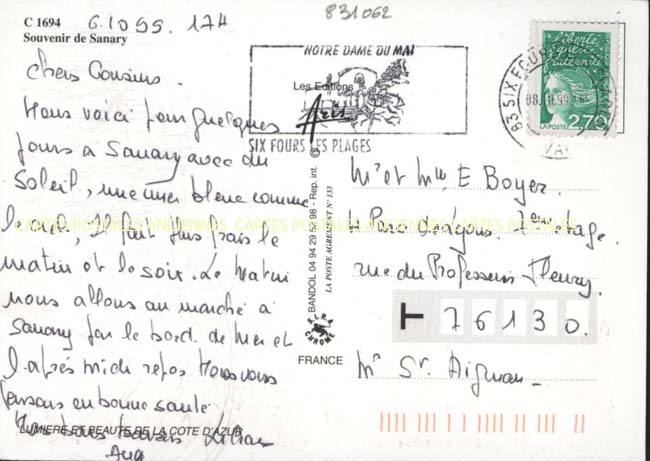 C 1694 6.10 99. 17H
Souvenir de Sanary
831062
Chers Cousins.
Nous voici pour quelques
jours à Sanary avec du
Soleil, une mer bleue comme
le ciel, Il fait plus frais le
matin et le soir. Le Matin
nous allons au marché à
Sanary par le bord de Mer et
l'après midi repos Nous vous
pensons en bonne santé
LUMIERE ET BEAUTE DE LA COTE D'AZUR
NOTRE DAME DU MAI
SIX FOURS LES PLAGES
Les Editions
Aris
BANDOL 04 94 29 52 98 - Rep. int. ©
LA POSTE AGREMENT N° 133
FRANCE
83 SIX FOURS
VAR
Liberté
égalité
fraternité
LA POSTE 2,70
Mr et Mme E Boyer
rue du Professeur Fleury.
76130.
Mt St. Aignan
CARTES POSTALES ANCIENNES CARTES POSTALES ANCIENNES CARTES POSTALES